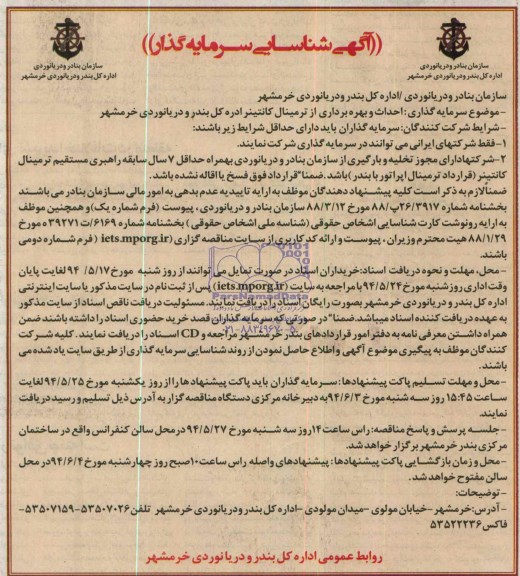 ((آگهی شناسایی سرمایه گذار))
سازمان بنادر و دریانوردی
اداره کل بندر و دریانوردی خرمشهر
سازمان بنادر و دریانوردی
اداره کل بندر و دریانوردی خرمشهر
سازمان بنادر و دریانوردی /اداره کل بندر ودریانوردی خرمشهر
-موضوع سرمایه گذاری : احداث و بهره برداری از ترمینال کانتینر ادره کل بندر و دریانوردی خرمشهر
-شرایط شرکت کنندگان: سرمایه گذاران باید دارای حداقل شرایط زیر باشند:
۱-فقط شرکتهای ایرانی می توانند در سرمایه گذاری شرکت نمایند.
۲-شرکتهادارای مجوز تخلیه و بارگیری از سازمان بنادر و دریانوردی بهمراه حداقل ۷ سال سابقه راهبری مستقیم ترمینال
کانتینر (قرارداد ترمینال اپراتور با بندر) باشد. ضمنا" قرارداد فوق فسخ یا اقاله نشده باشد.
ضمناًلازم به ذکر است کلیه پیشنهاد دهندگان موظف به ارایه تاییدیه عدم بدهی به امور مالی سازمان بنادر می باشند
بخشنامه شماره ۲۶/۳۹۱۷پ/۸۸ مورخ ۸۸/۳/۱۲ سازمان بنادر و دریانوردی ، پیوست (فرم شماره یک) و همچنین موظف
به ارایه رونوشت کارت شناسایی اشخاص حقوقی (شناسه ملی اشخاص حقوقی ) بخشنامه شماره ۶۱۶۹/ت ۳۹۲۷۱ ه مورخ
۸۸/۱/۲۹ هیت محترم وزیران ، پیوست و ارائه کد کاربری از سایت مناقصه گزاری (iets.mporg.ir ) فرم شماره دومی
باشند.
-محل، مهلت و نحوه دریافت اسناد: خریداران اسناد در صورت تمایل می توانند از روز شنبه مورخ ۹۴/۵/۱۷ لغایت پایان
وقت اداری روز شنبه مورخ ۹۴/۵/۲۴ با مراجعه به سایت (iets.mporg.ir) پس از ثبت نام در سایت مذکور یا سایت اینترنتی
اداره کل بندر و دریانوردی خرمشهر بصورت رایگان اسناد را دریافت نمایند. مسئولیت دریافت ناقص اسناد از سایت مذکور
به عهده دریافت کننده اسناد میباشد.ضمنا" در صورتی که سرمایه گذاران قصد خرید حضوری اسناد را داشته باشند ضمن
همراه داشتن معرفی نامه به دفتر امور قراردادهای بندر خرمشهر مراجعه و CD اسناد را دریافت نمایند. کلیه شرکت
کنندگان موظف به پیگیری موضوع آگهی و اطلاع حاصل نمودن از روند شناسایی سرمایه گذاری از طریق سایت یاد شده می
باشند.
-محل و مهلت تسلیم پاکت پیشنهادها: سرمایه گذاران باید پاکت پیشنهادها را از روز یکشنبه مورخ ۹۴/۵/۲۵ لغایت
ساعت ۱۵:۴۵ روز سه شنبه مورخ ۹۴/۶/۳ به دبیرخانه مرکزی دستگاه مناقصه گزار به آدرس ذیل تسلیم و رسید دریافت
نمایند.
-جلسه پرسش و پاسخ مناقصه: راس ساعت ۱۴ روز سه شنبه مورخ ۹۴/۵/۲۷ در محل سالن کنفرانس واقع در ساختمان
مرکزی بندر خرمشهر برگزار خواهد شد.
-محل و زمان بازگشایی پاکت پیشنهادها: پیشنهادهای واصله راس ساعت ۱۰ صبح روز چهارشنبه مورخ ۹۴/۶/۴ در محل
سالن مفتوح خواهد شد.
-توضیحات:
-آدرس: خرمشهر -خیابان مولوی -میدان مولودی -اداره کل بندر و دریانوردی خرمشهر تلفن ۵۳۵۰۷۰۲۶-۵۳۵۰۷۱۵۹
فاکس ۵۳۵۲۲۲۳۶
روابط عمومی اداره کل بندر و دریانوردی خرمشهر
ParsNamadData
۰۲۱-۸۸۳۴۹۶۷۰-۵